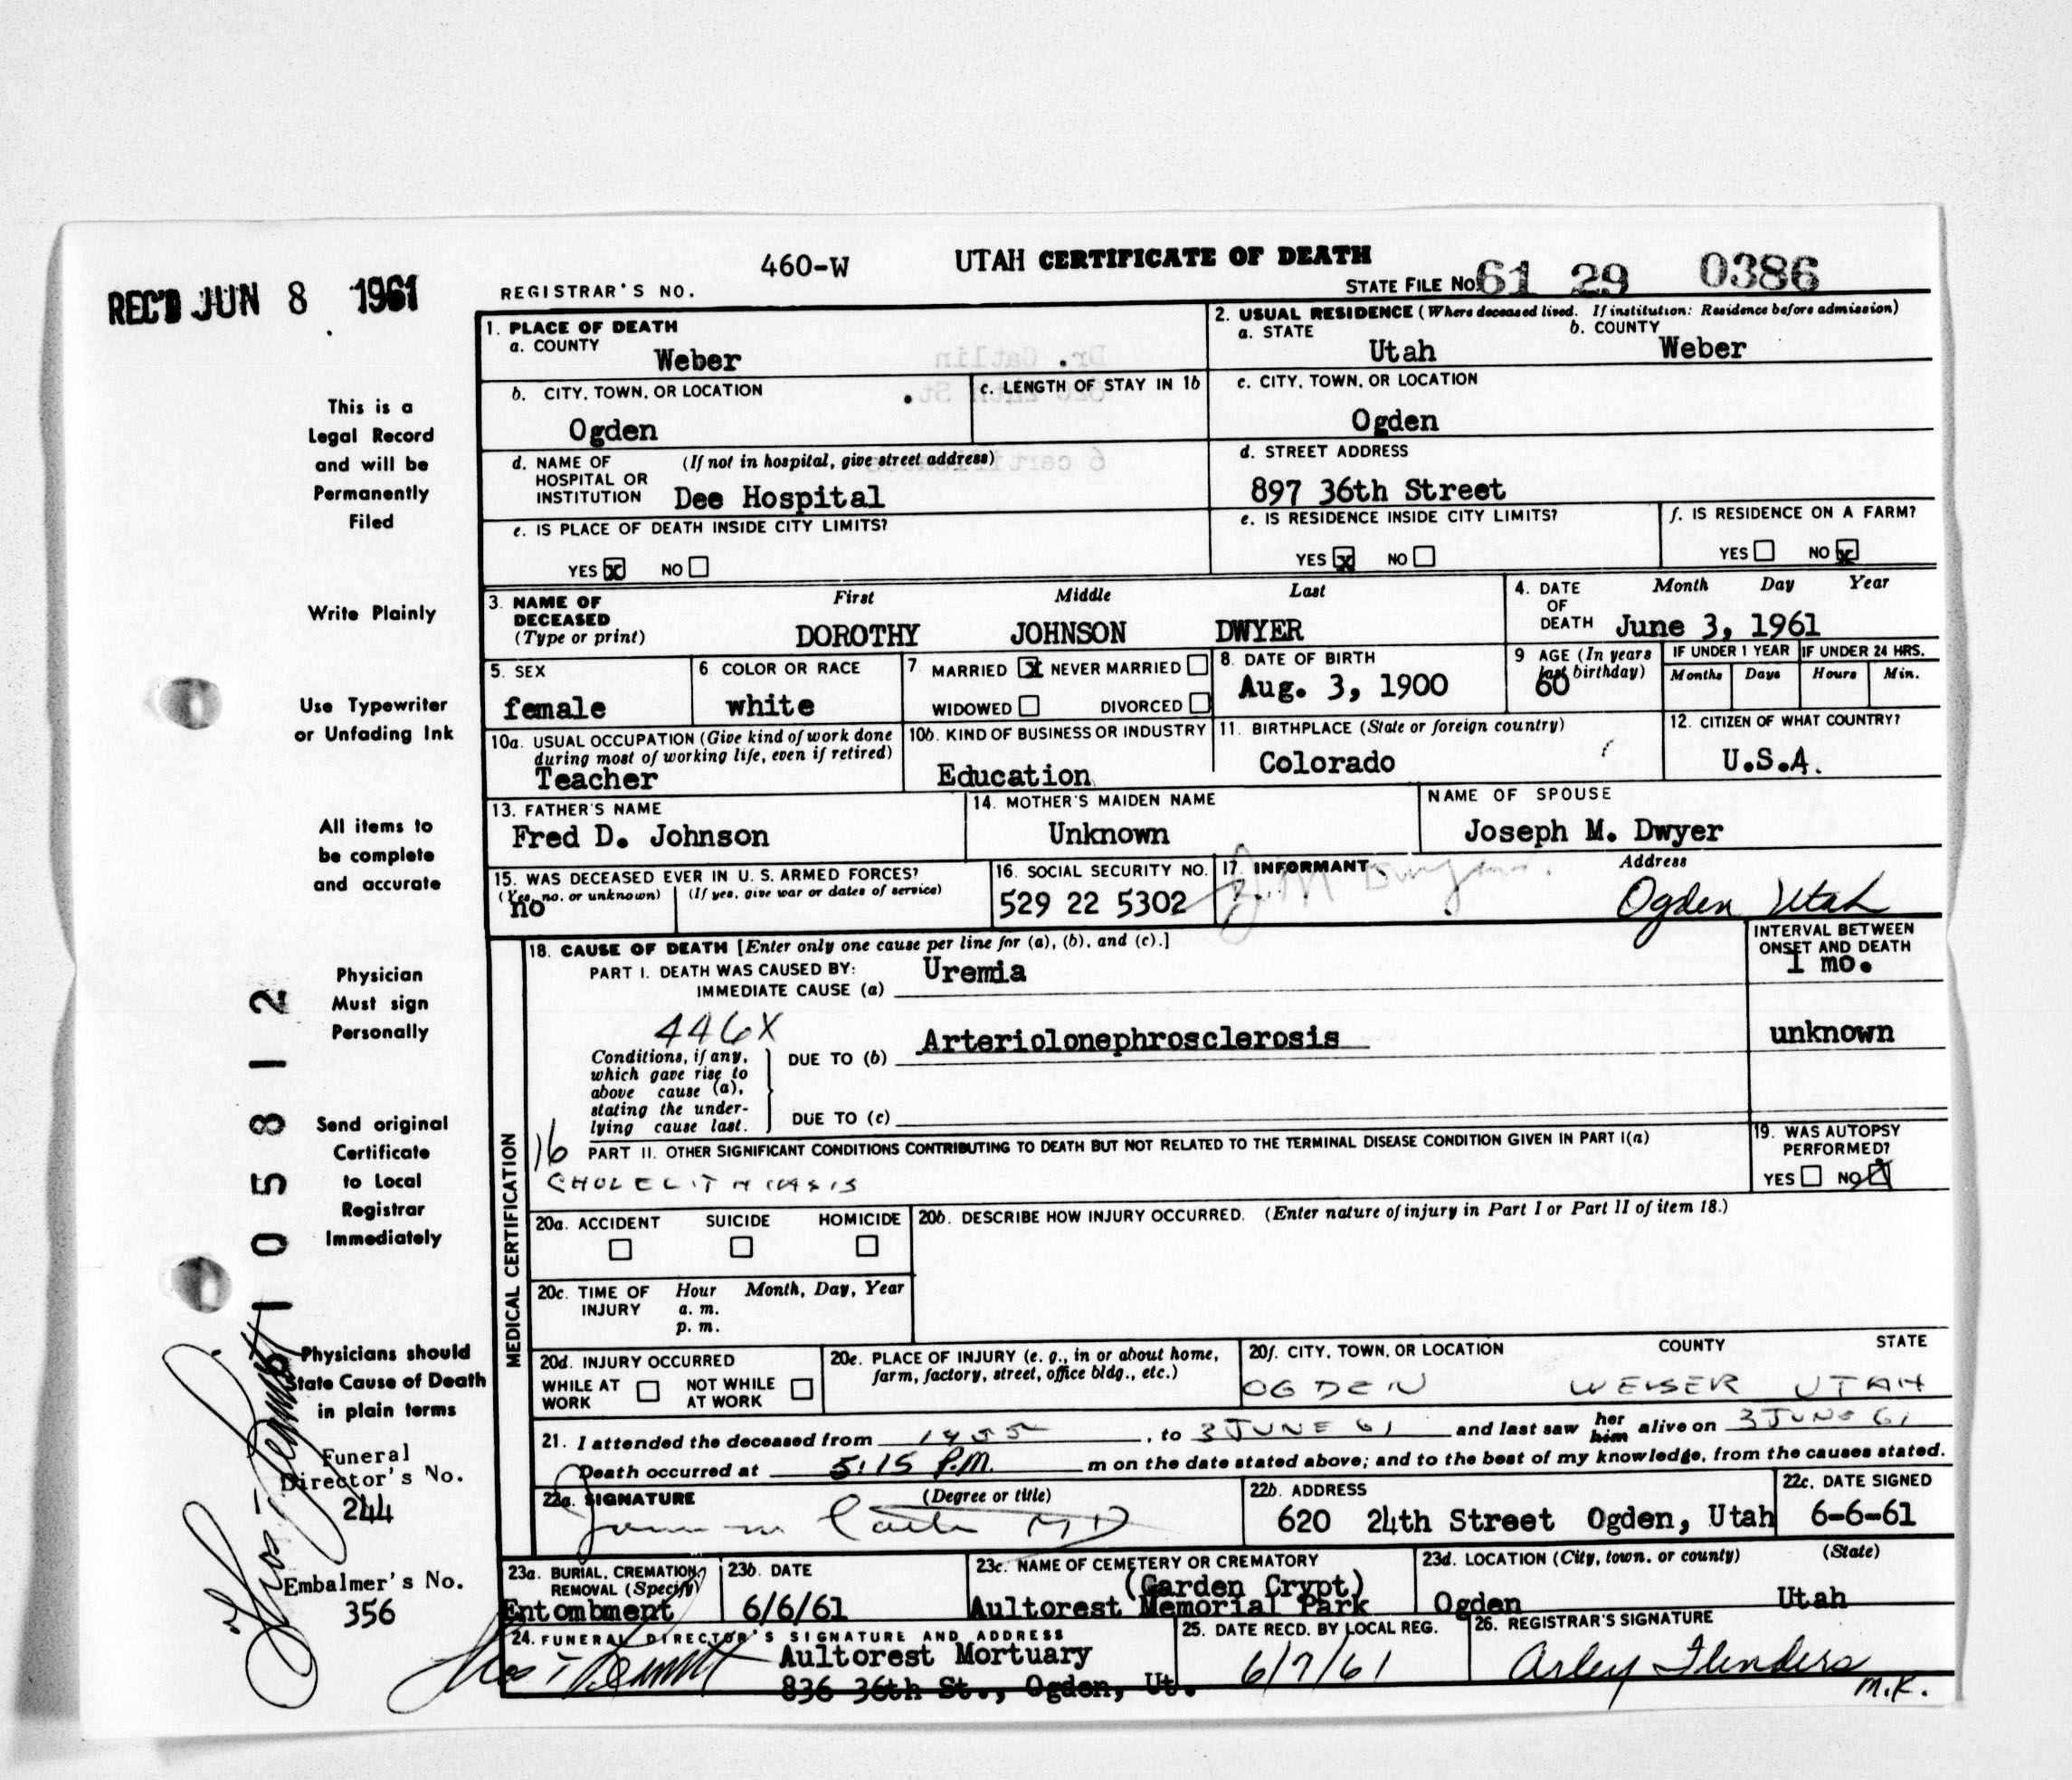 REC'D JUN 8 1961
460-W
UTAH CERTIFICATE OF DEATH
REGISTRAR'S NO.
STATE FILE NO. 61 29 0386
This is a
Legal Record
and will be
Permanently
Filed
Write Plainly
Use Typewriter
or Unfading Ink
All items to
be complete
and accurate
Physician
Must sign
Personally
Send original
Certificate
to Local
Registrar
Immediately
Physicians should
State Cause of Death
in plain terms
Funeral
Director's No.
244
Embalmer's No.
356
1105812
1. PLACE OF DEATH
a. COUNTY
Weber
2. USUAL RESIDENCE (Where deceased lived. If institution: Residence before admission)
a. STATE
Utah
b. COUNTY
Weber
b. CITY, TOWN, OR LOCATION
Ogden
c. LENGTH OF STAY IN 1b
c. CITY, TOWN, OR LOCATION
Ogden
d. NAME OF HOSPITAL OR INSTITUTION
(If not in hospital, give street address)
Dee Hospital
d. STREET ADDRESS
897 36th Street
e. IS PLACE OF DEATH INSIDE CITY LIMITS?
YES x NO
e. IS RESIDENCE INSIDE CITY LIMITS?
YES x NO
f. IS RESIDENCE ON A FARM?
YES NO x
3. NAME OF DECEASED
(Type or print)
First Middle Last
DOROTHY JOHNSON DWYER
4. DATE OF DEATH
Month Day Year
June 3, 1961
5. SEX
female
6. COLOR OR RACE
white
7. MARRIED x NEVER MARRIED
WIDOWED DIVORCED
8. DATE OF BIRTH
Aug. 3, 1900
9 AGE (In years last birthday)
60
IF UNDER 1 YEAR
Months Days
IF UNDER 24 HRS.
Hours Min.
10a. USUAL OCCUPATION (Give kind of work done
during most of working life, even if retired)
Teacher
10b. KIND OF BUSINESS OR INDUSTRY
Education
11. BIRTHPLACE (State or foreign country)
Colorado
12. CITIZEN OF WHAT COUNTRY?
U.S.A.
13. FATHER'S NAME
Fred D. Johnson
14. MOTHER'S MAIDEN NAME
Unknown
NAME OF SPOUSE
Joseph M. Dwyer
15. WAS DECEASED EVER IN U. S. ARMED FORCES?
(Yes, no, or unknown) (If yes, give war or dates of service)
no
16. SOCIAL SECURITY NO.
529 22 5302
17. INFORMANT Address
J M Dwyer Ogden Utah
MEDICAL CERTIFICATION
18. CAUSE OF DEATH [Enter only one cause per line for (a), (b), and (c).]
INTERVAL BETWEEN
ONSET AND DEATH
PART I. DEATH WAS CAUSED BY:
IMMEDIATE CAUSE (a) Uremia
1 mo.
446X
Conditions, if any,
which gave rise to
above cause (a),
stating the under-
lying cause last.
DUE TO (b) Arteriolonephrosclerosis
unknown
DUE TO (c)
16
PART II. OTHER SIGNIFICANT CONDITIONS CONTRIBUTING TO DEATH BUT NOT RELATED TO THE TERMINAL DISEASE CONDITION GIVEN IN PART I(a)
CHOLELITHIASIS
19. WAS AUTOPSY
PERFORMED?
YES NO X
20a. ACCIDENT SUICIDE HOMICIDE
20b. DESCRIBE HOW INJURY OCCURRED. (Enter nature of injury in Part I or Part II of item 18.)
20c. TIME OF INJURY
Hour Month, Day, Year
a. m.
p. m.
20d. INJURY OCCURRED
WHILE AT WORK NOT WHILE AT WORK
20e. PLACE OF INJURY (e. g., in or about home,
farm, factory, street, office bldg., etc.)
20f. CITY, TOWN, OR LOCATION COUNTY STATE
OGDEN WEBER UTAH
21. I attended the deceased from 1955, to 3 JUNE 61 and last saw her him alive on 3 JUNE 61
Death occurred at 5:15 P.M. m on the date stated above; and to the best of my knowledge, from the causes stated.
22a. SIGNATURE (Degree or title)
MD
22b. ADDRESS
620 24th Street Ogden, Utah
22c. DATE SIGNED
6-6-61
23a. BURIAL, CREMATION,
REMOVAL (Specify)
Entombment
23b. DATE
6/6/61
23c. NAME OF CEMETERY OR CREMATORY
(Garden Crypt)
Aultorest Memorial Park
23d. LOCATION (City, town, or county) (State)
Ogden Utah
24. FUNERAL DIRECTOR'S SIGNATURE AND ADDRESS
Aultorest Mortuary
836 36th St., Ogden, Ut.
25. DATE RECD. BY LOCAL REG.
6/7/61
26. REGISTRAR'S SIGNATURE
Arley Flinders
M.K.